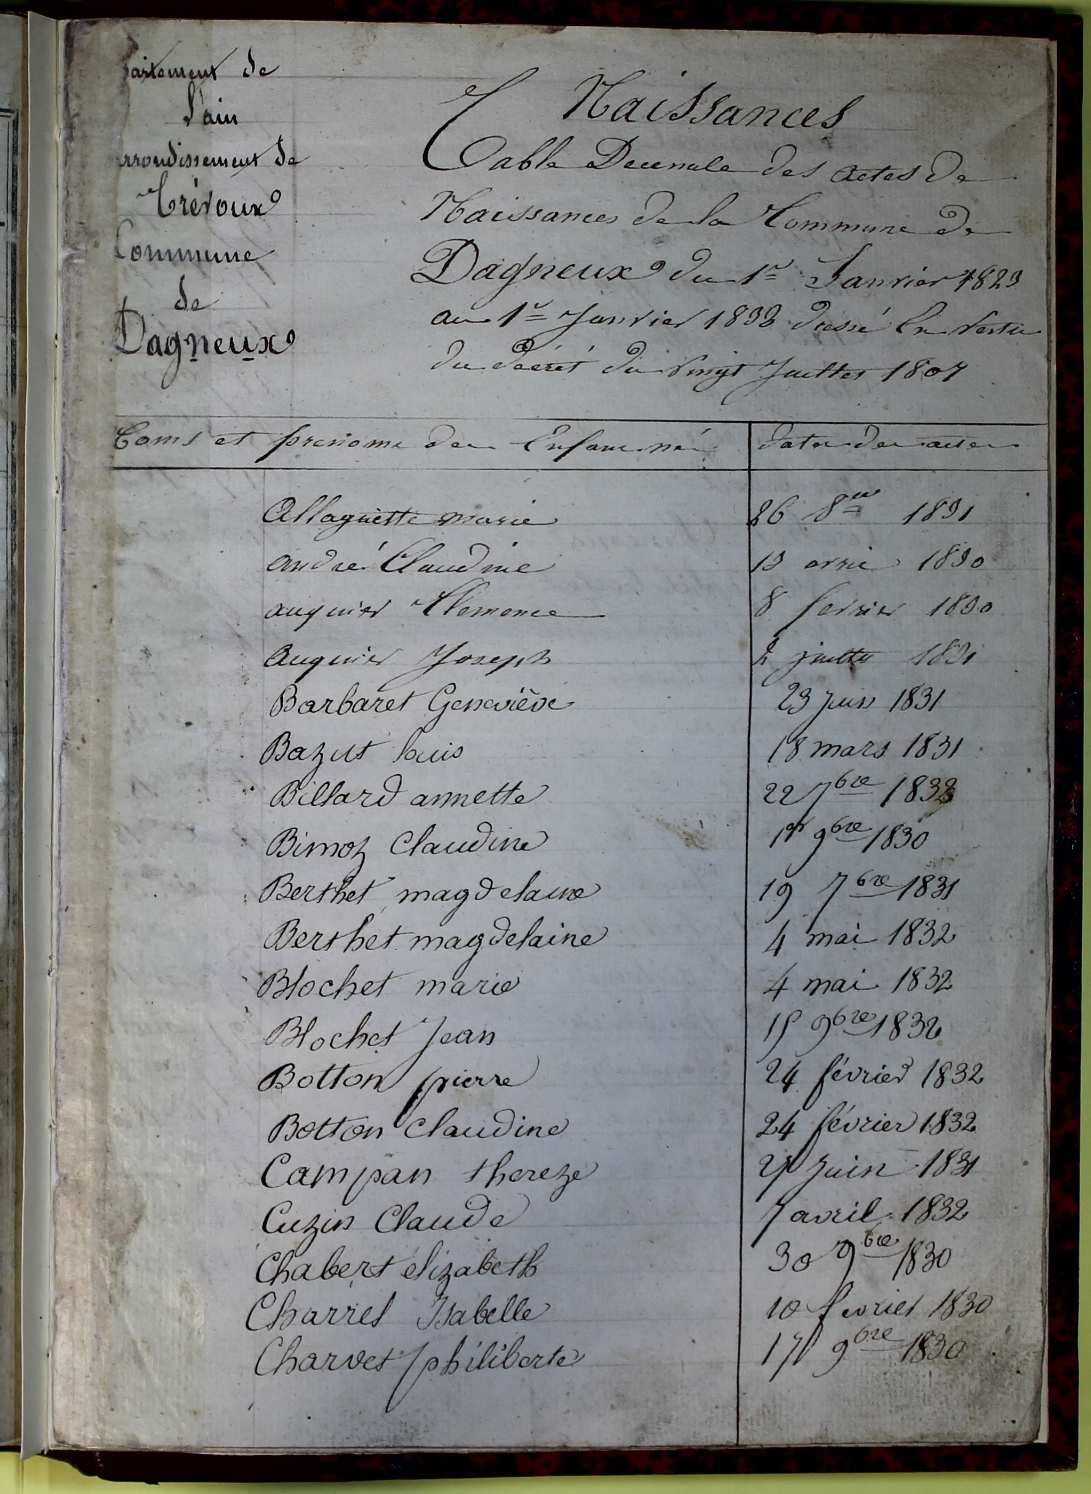 partement de
l'ain
arrondissement de
Trévoux
Commune
de
Dagneux
Naissances
Table Decennale des actes de
Naissances de la Commune de
Dagneux du 1er Janvier 1823
au 1er Janvier 1833 dressé En Vertu
du décret du vingt Juillet 1807
Noms et prenoms des Enfans nés
dates des actes
Allaguette marie 26 8bre 1831
andré Claudine 13 avril 1830
auguier Clemence 8 fevrier 1830
auguier Joseph 2 juillet 1831
Barbaret Geneviève 23 juin 1831
Bazus louis 18 mars 1831
Billard annette 22 7bre 1832
Bimoz Claudine 1er 9bre 1830
Berthet magdelaine 19 7bre 1831
Berthet magdelaine 4 mai 1832
Blochet marie 4 mai 1832
Blochet Jean 15 9bre 1832
Botton pierre 24 février 1832
Botton Claudine 24 février 1832
Campan thereze 25 Juin 1831
Cuzin Claude 7 avril 1832
Chabert élizabeth 30 9bre 1830
Charrel Isabelle 10 fevrier 1830
Charvet philiberte 17 9bre 1830